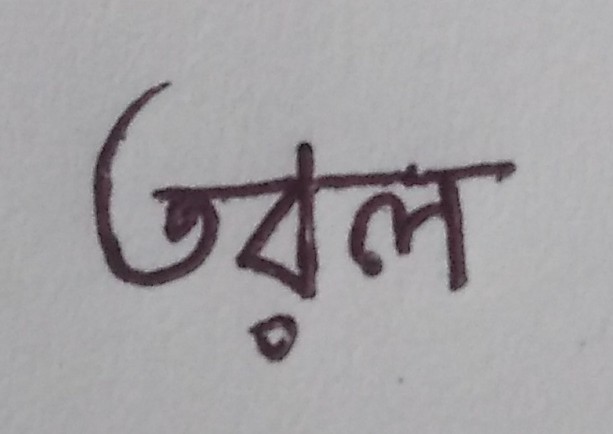 তরল